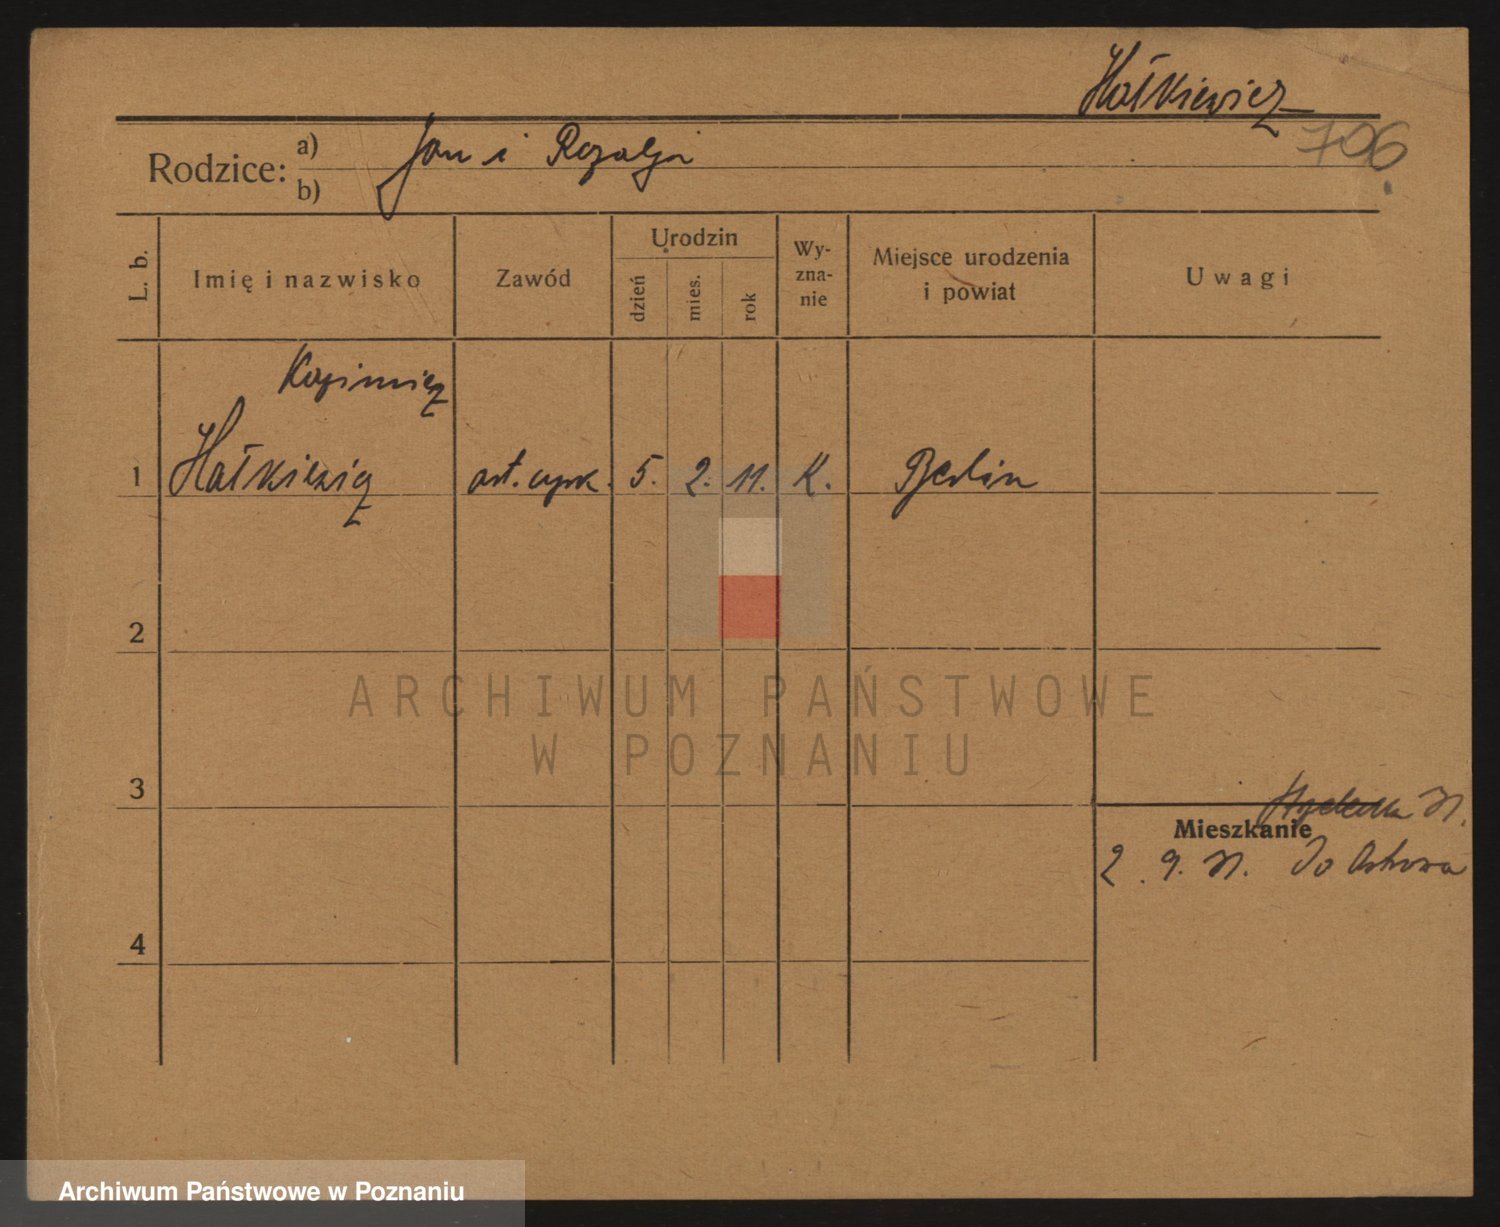 Hołkiewicz
706
Rodzice: a) Jan i Rozalja
b)
L. b. Imię i nazwisko Zawód Urodzin dzień mies. rok Wy-zna-nie Miejsce urodzenia i powiat Uwagi
Kazimierz
1 Hołkiewicz art. cyrk. 5. 2. 11. K. Berlin
2
ARCHIWUM PAŃSTWOWE
W POZNANIU
3
Mieszkanie
2. 9. 31. Do Ostrowa
4
Archiwum Państwowe w Poznaniu